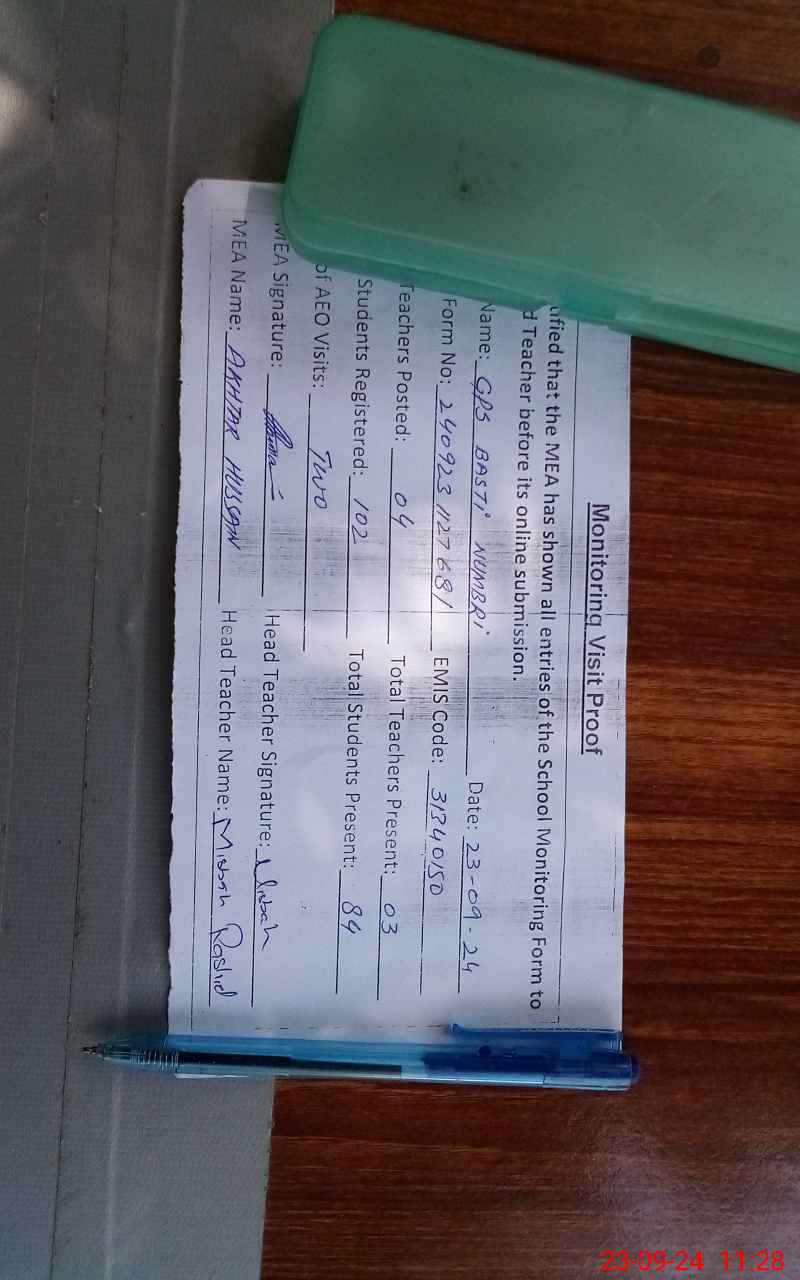 Monitoring Visit Proof
ified that the MEA has shown all entries of the School Monitoring Form to
d Teacher before its online submission.
Name: GPS BASTI NUMBRI Date: 23-09-24
Form No: 240923 1127681 EMIS Code: 31340150
Teachers Posted: 04 Total Teachers Present: 03
Students Registered: 102 Total Students Present: 84
of AEO Visits: TWO
MEA Signature: Head Teacher Signature: Misbah
MEA Name: AKHTAR HUSSAIN Head Teacher Name: Misbah Rashid
23-09-24 11:28